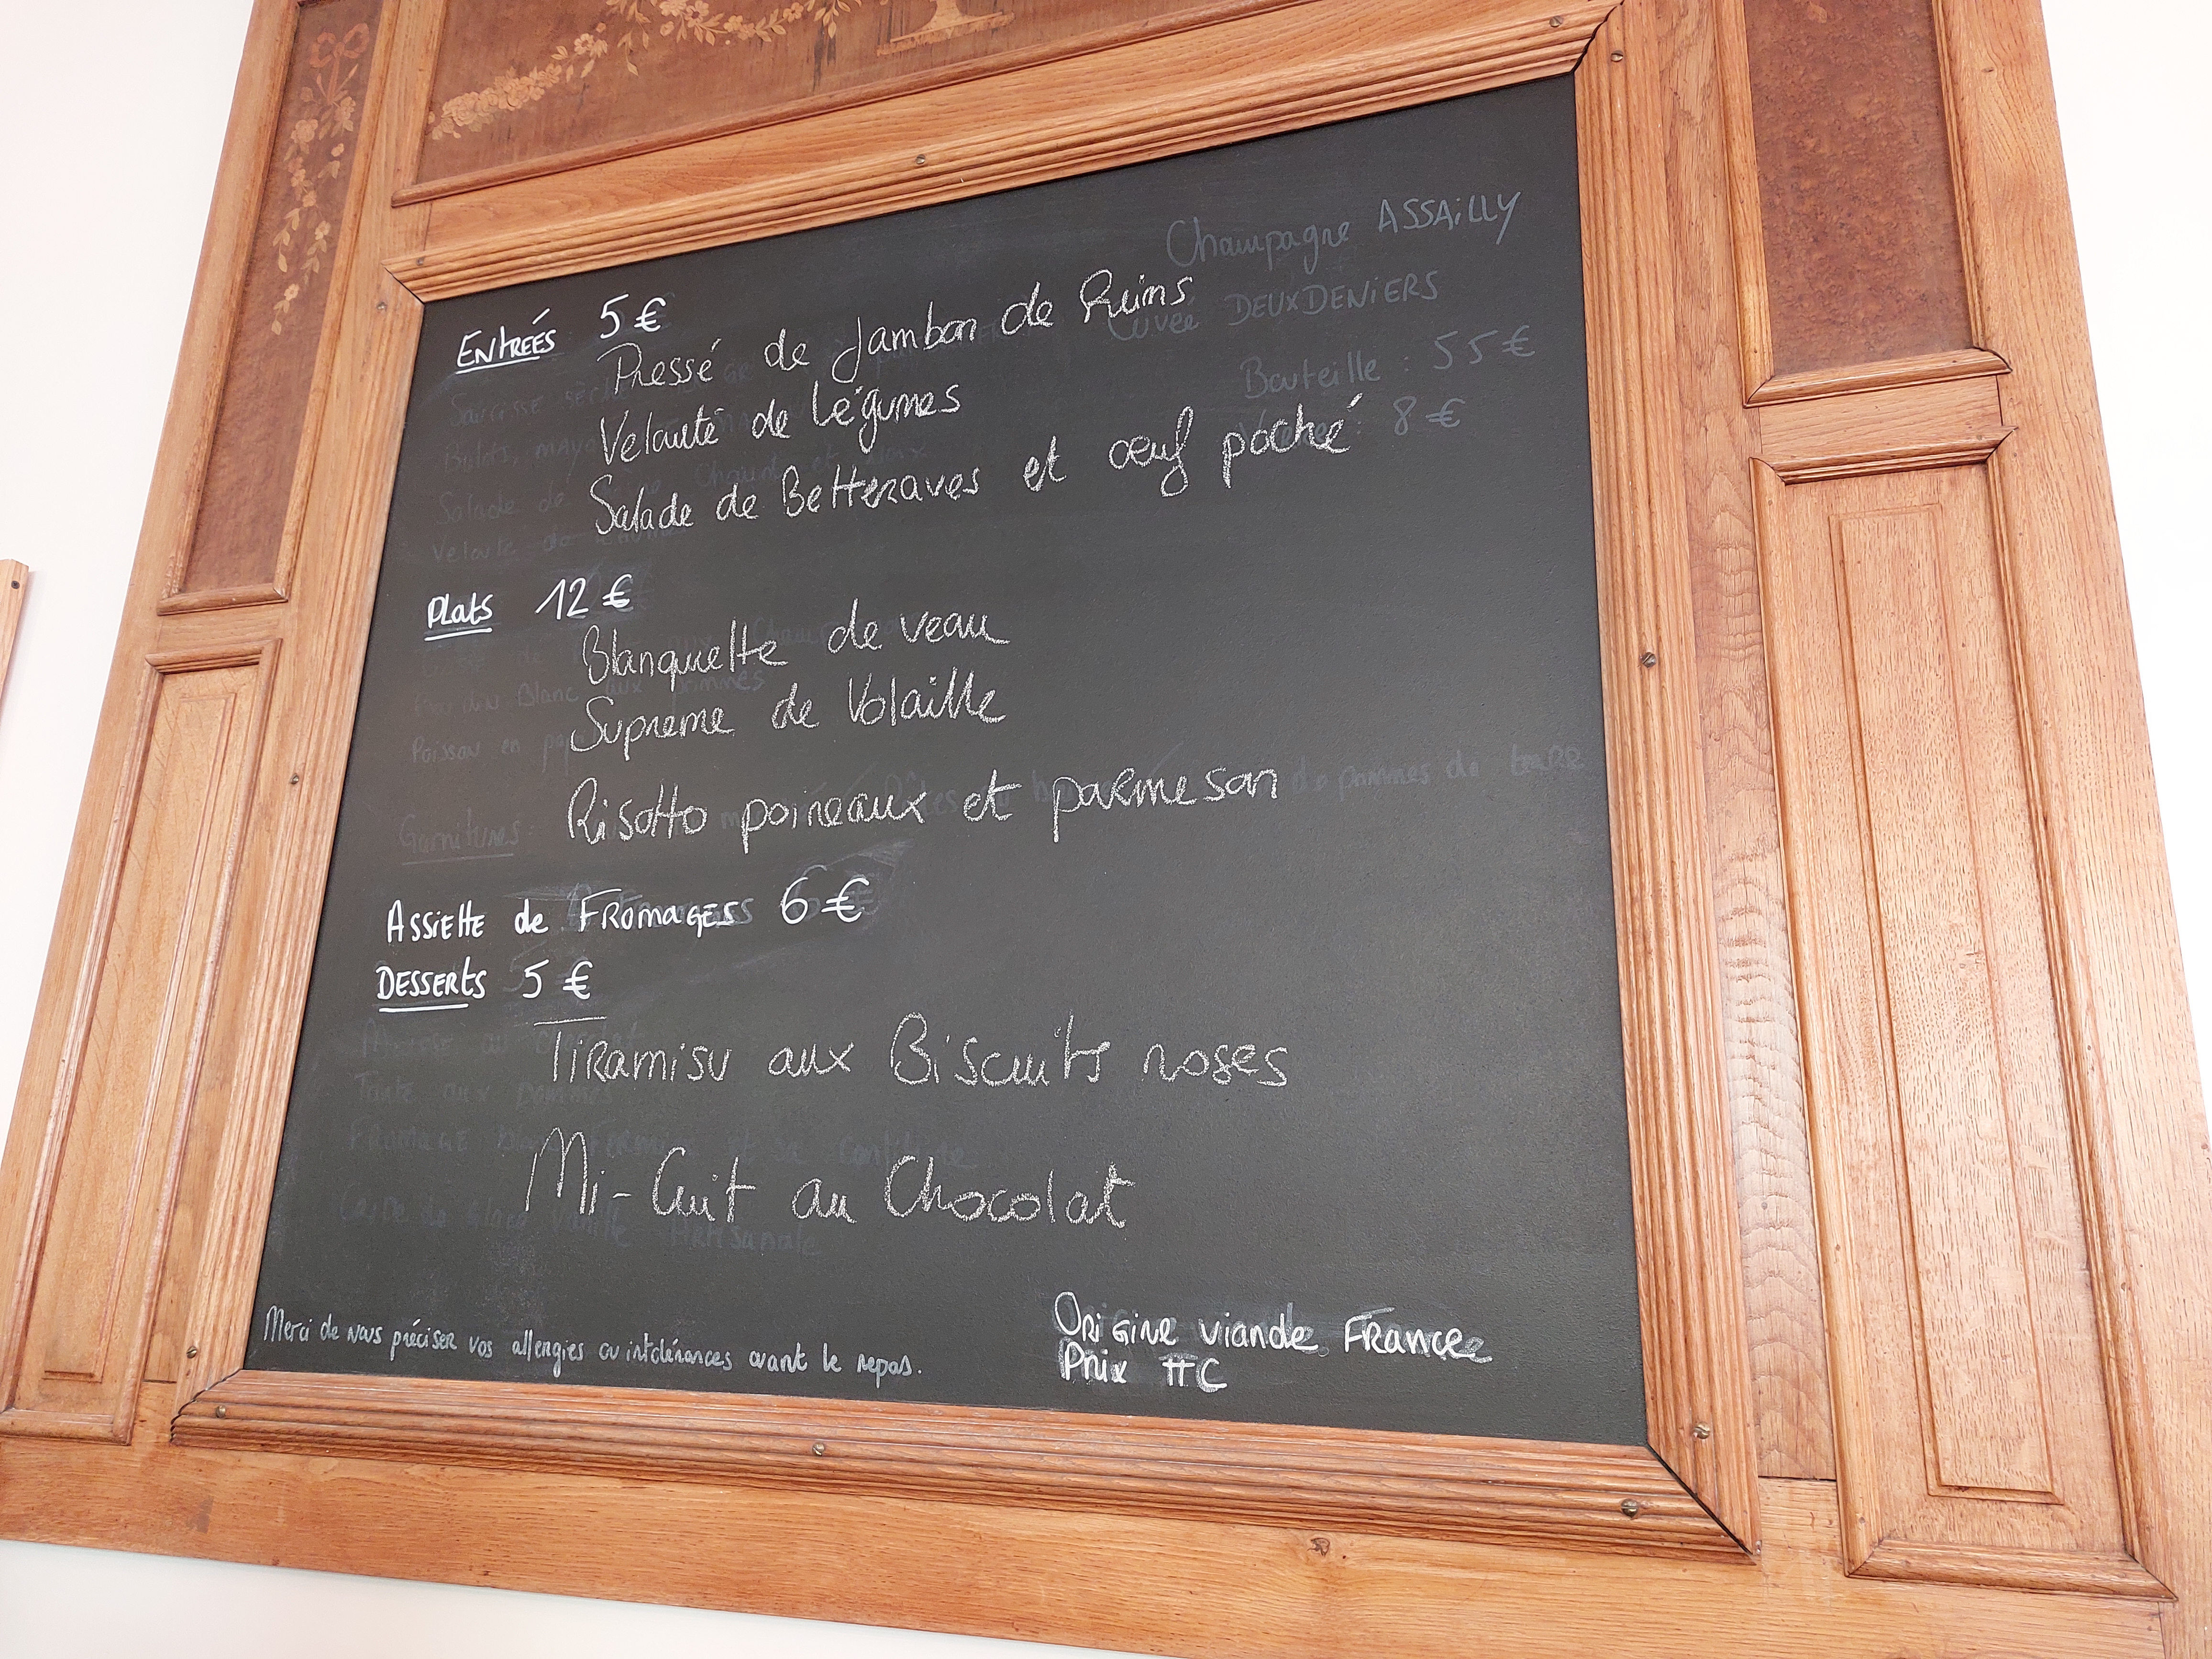 Entreés 5 €
Pressé de Jambon de Reims
Velouté de Légumes
Salade de Betteraves et œuf poché
Champagne ASSAiLLY
Cuvée DEUX DENiERS
Bouteille : 55 €
8 €
Plats 12 €
Blanquette de veau
Supreme de Volaille
Risotto poireaux et parmesan
Garnitures
de pommes de terre
Assiette de Fromages 6 €
Desserts 5 €
Tiramisu aux Biscuits roses
Mi-Cuit au Chocolat
Merci de nous préciser vos allergies ou intolérances avant le repas.
Origine viande France
Prix TTC